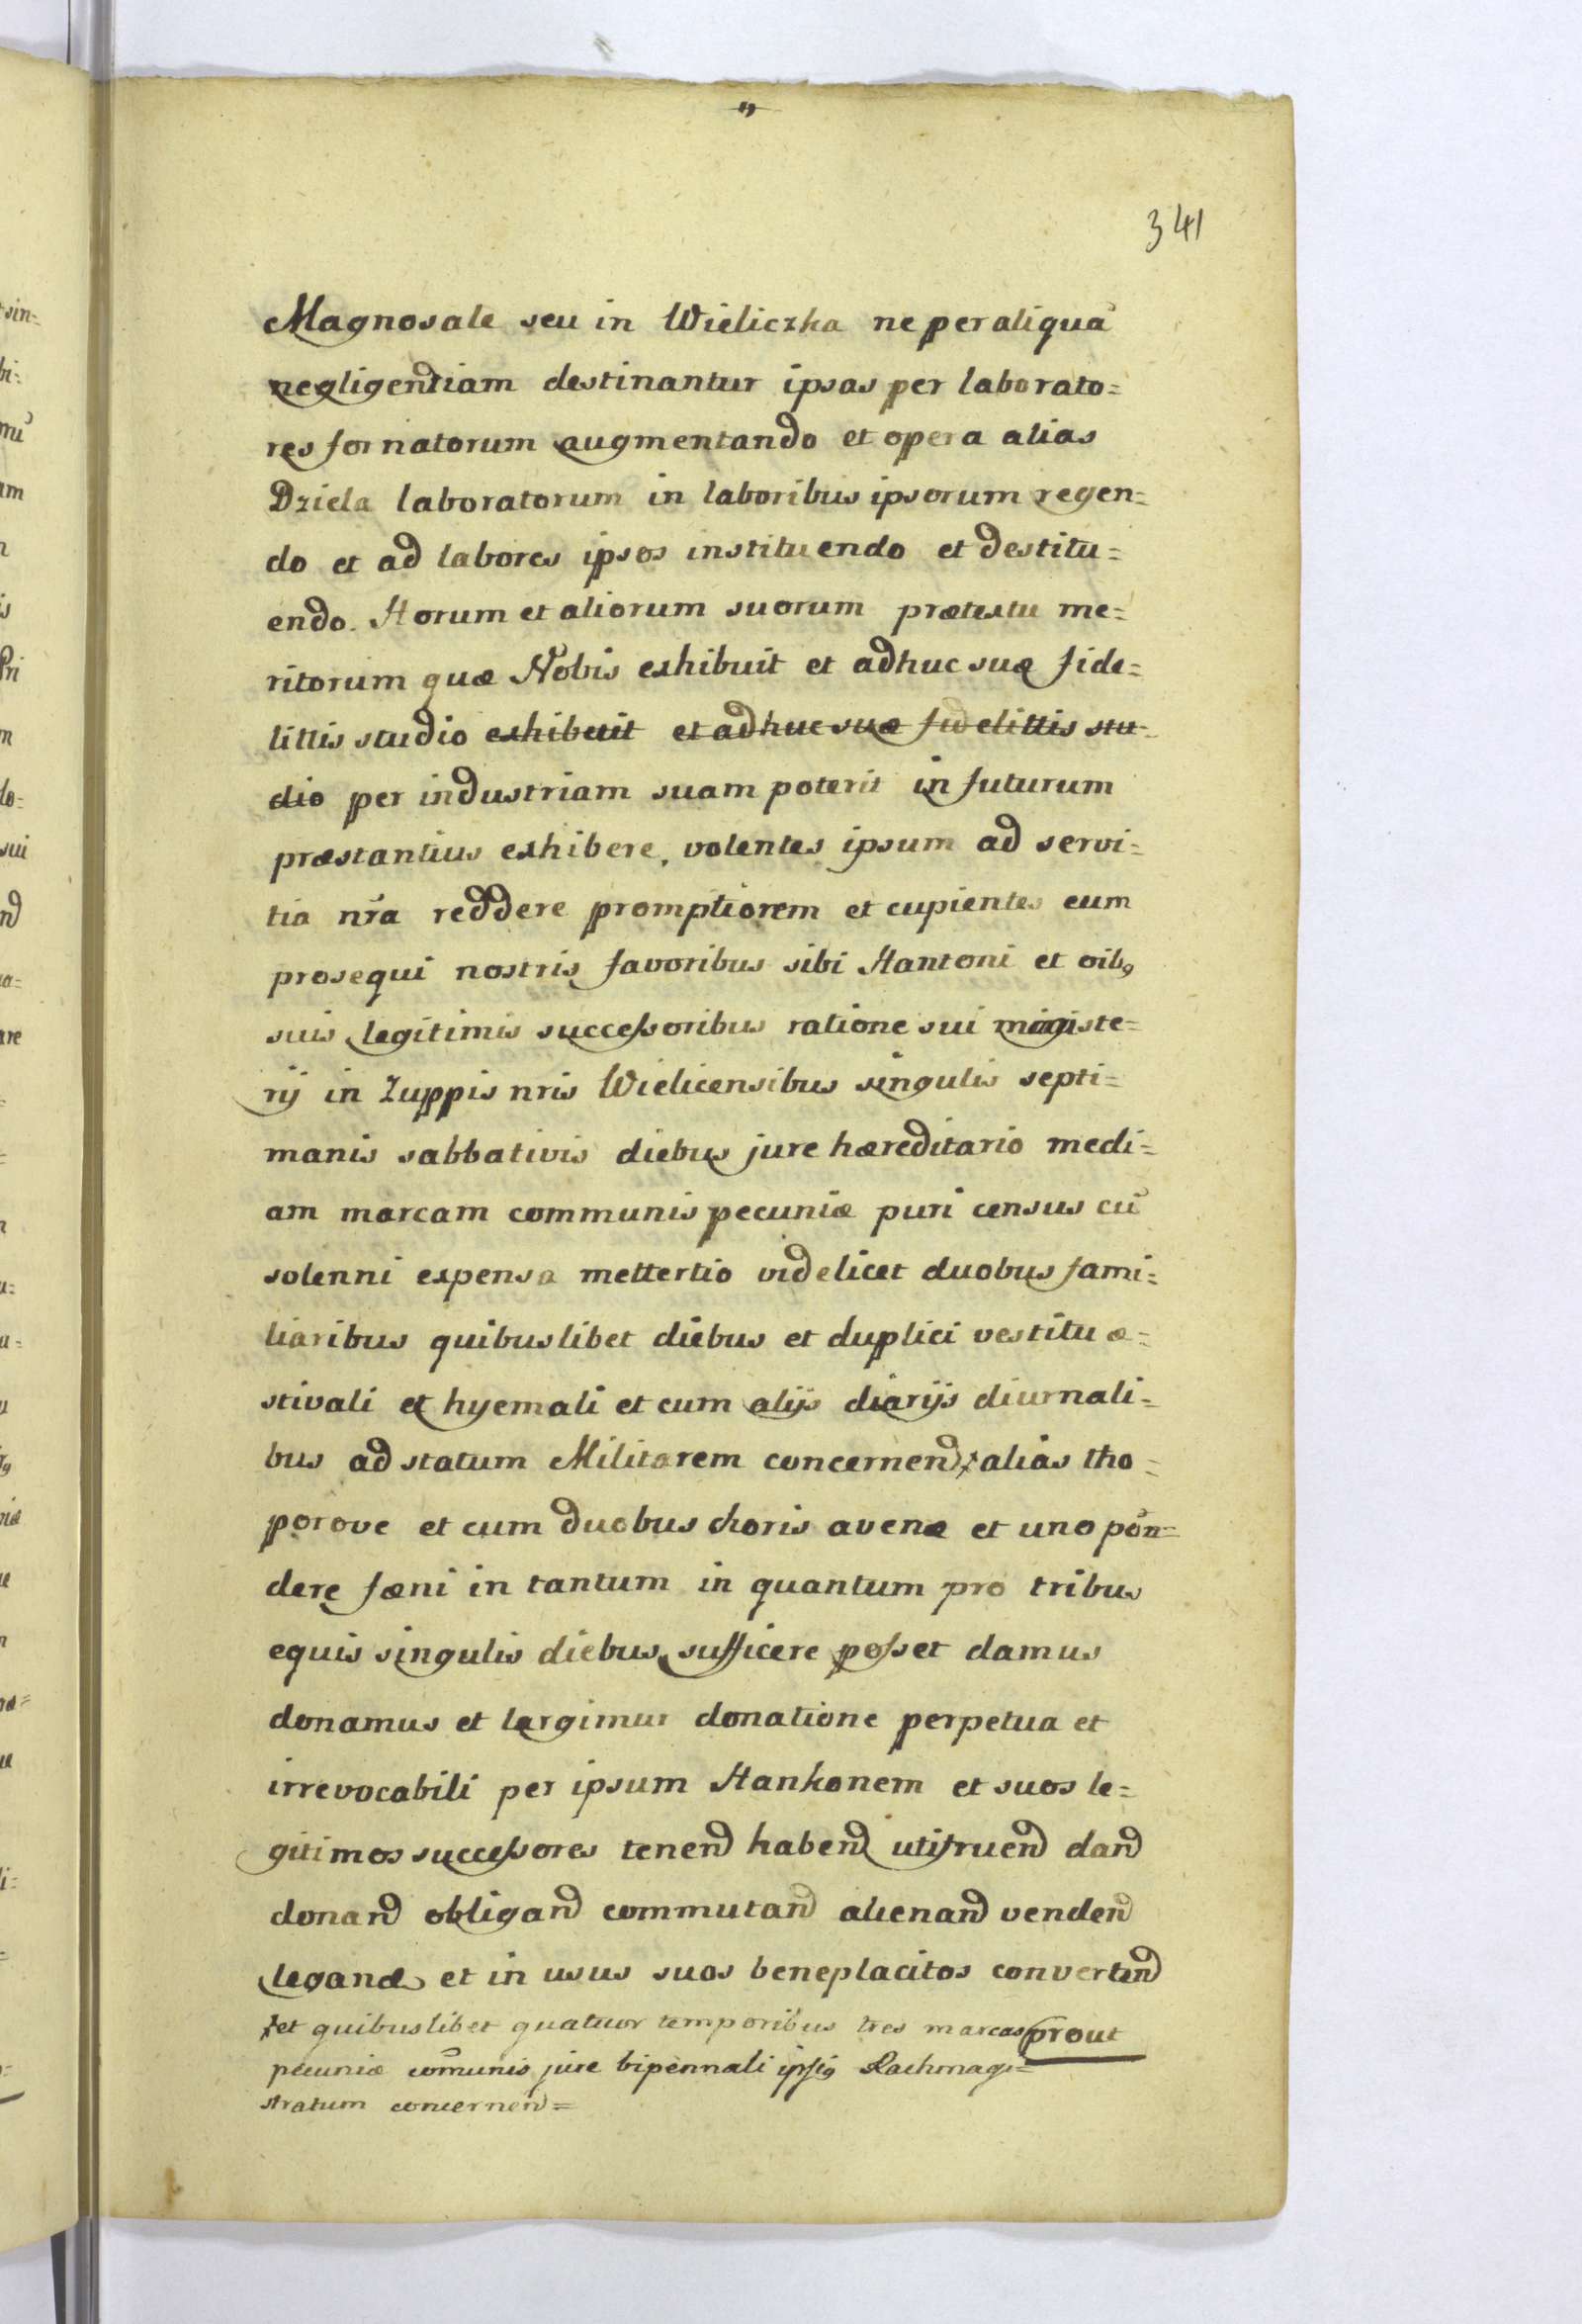 "
341
Magnosale seu in Wieliczka ne per aliquã
negligentiam destinantur ipsas per laborato=
res fornatorum augmentando et opera alias
Dziela laboratorum in laboribus ipsorum regen=
do et ad labores ipsos instituendo et destitu=
endo. Horum et aliorum suorum prætextu me=
ritorum quæ Nobis exhibuit et adhuc suæ fide=
littis studio exhibuit et adhuc suæ fidelittis stu=
dio per industriam suam poterit in futurum
præstantius exhibere, volentes ipsum ad servi=
tia nra reddere promptiorem et cupientes eum
prosequi nostris favoribus sibi Hantoni et oibq
suis legitimis successoribus ratione sui magiste=
rij in Zuppis nris Wielicensibus singulis septi=
manis sabbativis diebus jure hæreditario medi=
am marcam communis pecuniæ puri census cũ
solenni expensa mettertio videlicet duobus fami=
liaribus quibuslibet diebus et duplici vestitu æ=
stivali et hyemali et cum alijs diarijs diurnali=
bus ad statum Militarem concernend ɫ alias tho=
porove et cum duobus choris avenæ et uno pon=
dere fæni in tantum in quantum pro tribus
equis singulis diebus sufficere posset damus
donamus et largimur donatione perpetua et
irrevocabili per ipsum Hankonem et suos le=
gitimos successores tenend habend utifruend dand
donand obligand commutand alienand vendend
legand et in usus suos beneplacitos convertend
ɫ et quibuslibet quatuor temporibus tres marcas prout
pecuniæ com̃unis jure bipennali ipsiq Rachmagi=
stratum concernend=